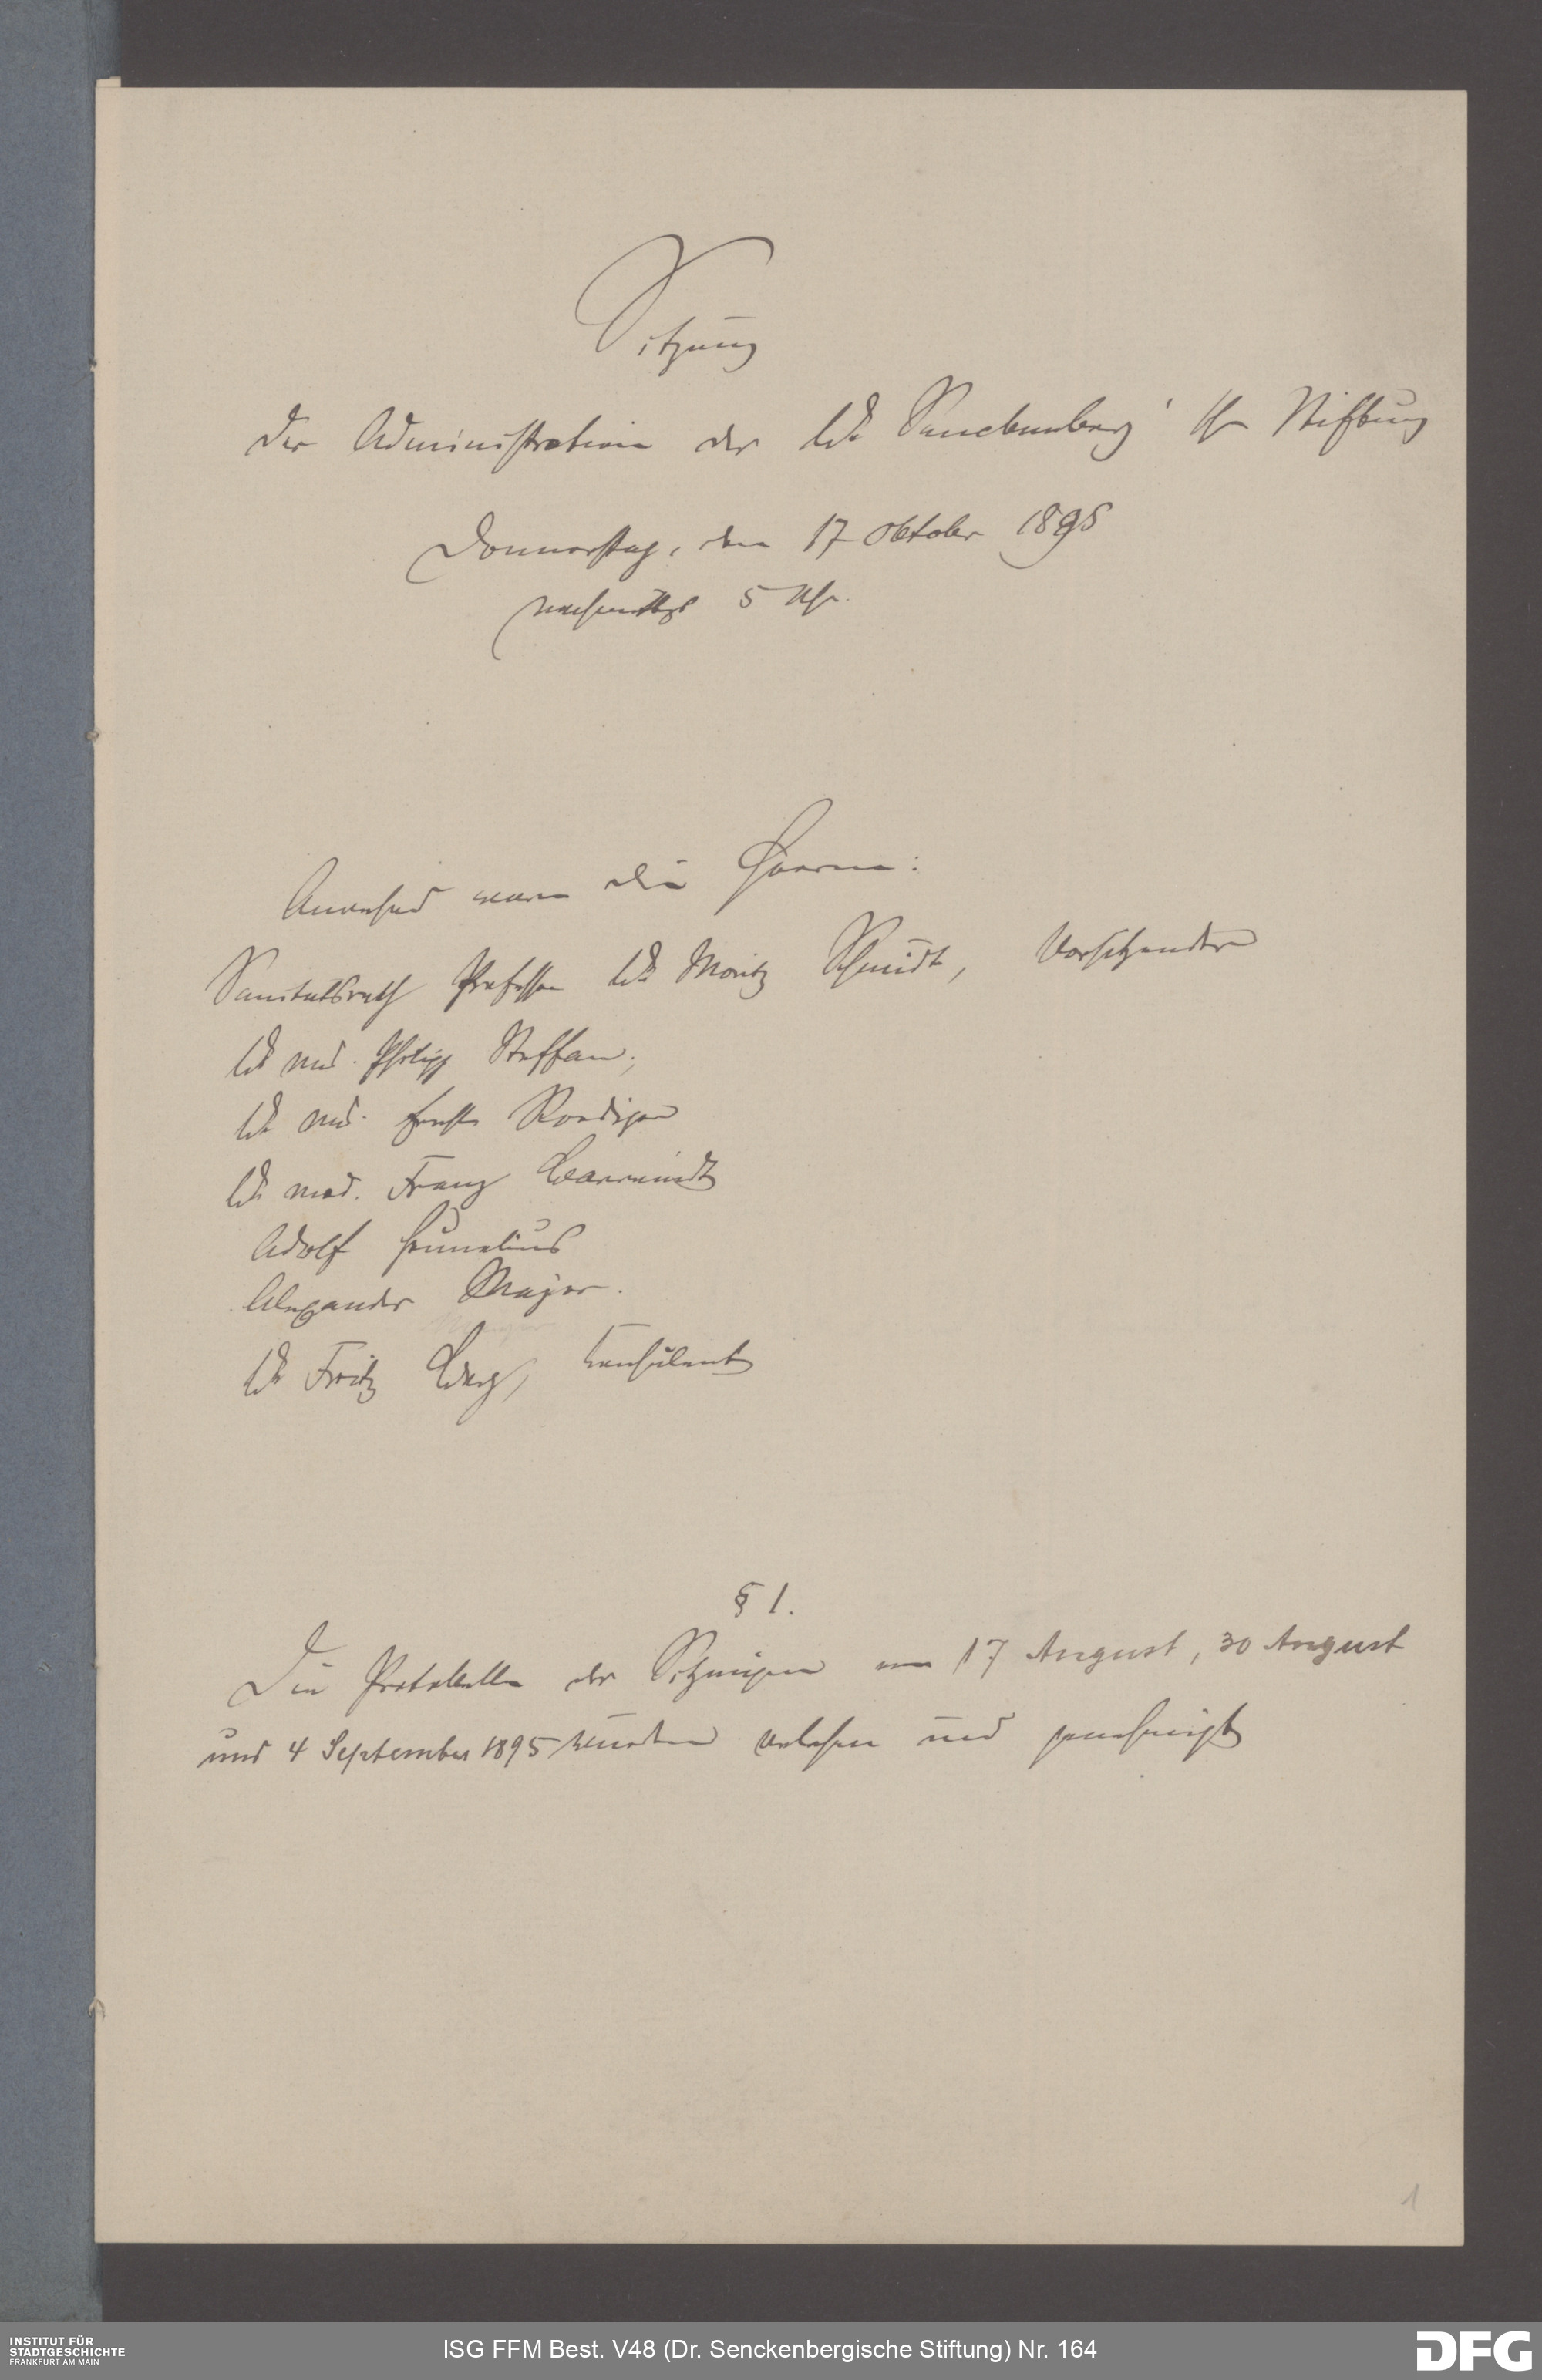 Sitzung
der Administration der Dr. Senckenberg'schen Stiftung
Donnerstag, den 17 Oktober 1895
nachmittgs 5 Uhr.
Anwesend waren die Herren:
Sanitätsrath Professor Dr Moritz Schmidt, Vorsitzender
Dr med. Philipp Steffan,
Dr med. Ernst Roediger
Dr med. Franz
Adolf
Alexander Majer.
Dr Fritz Berg, Consulent
§ 1.
Die Protokolle der Sitzungen vom 17 August, 30 August
und 4 September 1895 wurden verlesen und genehmigt
1
INSTITUT FÜR
STADTGESCHICHTE
FRANKFURT AM MAIN
ISG FFM Best. V48 (Dr. Senckenbergische Stiftung) Nr. 164
DFG